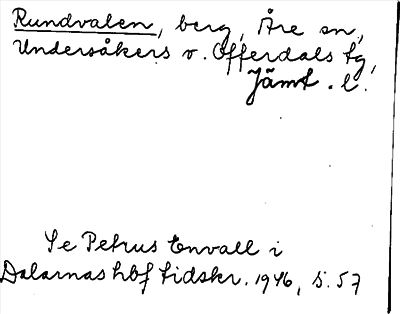 Rundvalen, berg, Åre sn,
Undersåkers o. Offerdals tg,
Jämt. l.
Se Petrus Envall i
Dalarnas hbf tidskr. 1946, s. 57